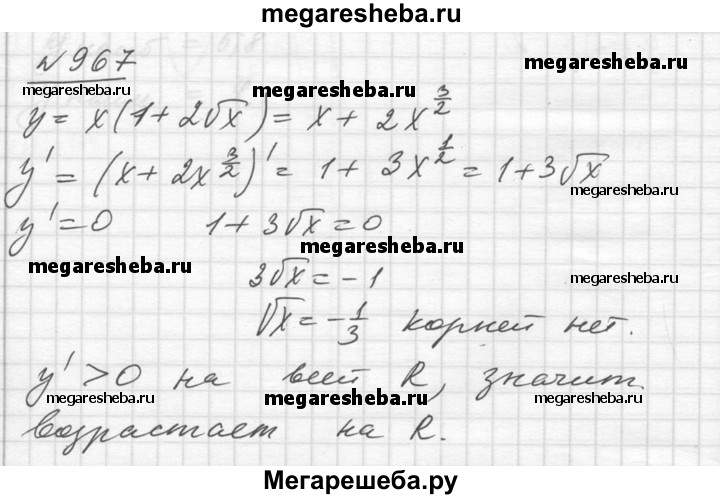 megaresheba.ru
№967
megaresheba.ru megaresheba.ru megaresheba.ru
y = x(1 + 2√x) = x + 2x^(3/2)
y' = (x + 2x^(3/2))' = 1 + 3x^(1/2) = 1 + 3√x
megaresheba.ru megaresheba.ru
y' = 0 1 + 3√x = 0
megaresheba.ru
megaresheba.ru 3√x = -1 megaresheba.ru
√x = -1/3 корней нет.
y' > 0 на всей R, значит
megaresheba.ru megaresheba.ru megaresheba.ru
возрастает на R.
Мегарешеба.ру